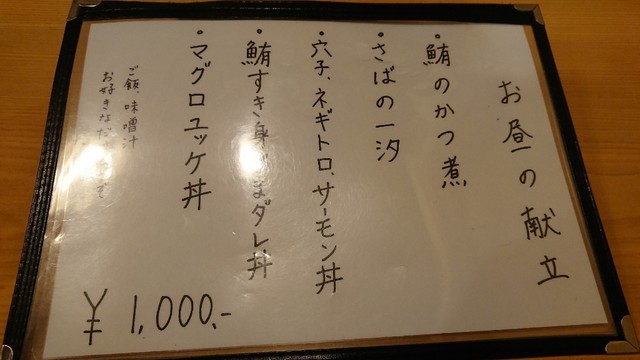 お昼の献立
・鮪のかつ煮
・さばの一汐
・穴子、ネギトロ、サーモン丼
・鮪すき身ごまダレ丼
・マグロユッケ丼
ご飯、味噌汁
お好きなだけ
¥1,000.-